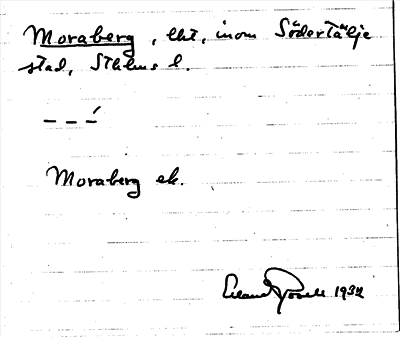 Moraberg, lht, inom Södertälje
stad, Sthlms l.
– – –́
Moraberg ek.
1932